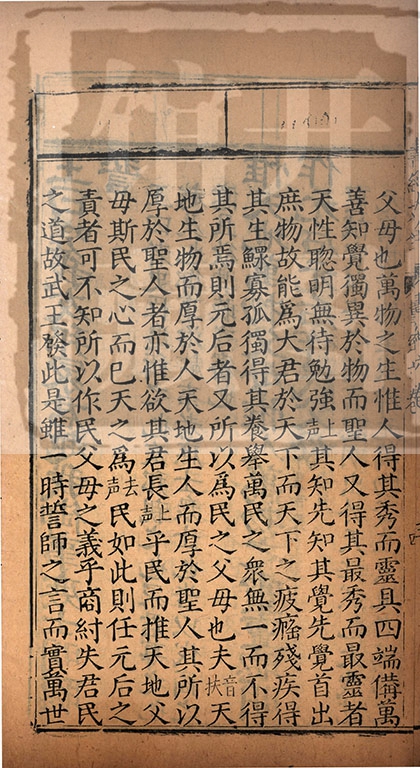 父母也萬物之生惟人得其秀而靈具四端備萬
善知覺獨異於物而聖人又得其最秀而最靈者
天性聰明無待勉強上声其知先知其覺先覺首出
庶物故能爲大君於天下而天下之疲癃殘疾得
其生鰥寡孤獨得其養舉萬民之衆無一而不得
其所焉則元后者又所以爲民之父母也夫音扶天
地生物而厚於人天地生人而厚於聖人其所以
厚於聖人者亦惟欲其君長上声乎民而推天地父
母斯民之心而已天之爲去声民如此則任元后之
責者可不知所以作民父母之義乎商紂失君民
之道故武王發此是雖一時誓師之言而實萬世